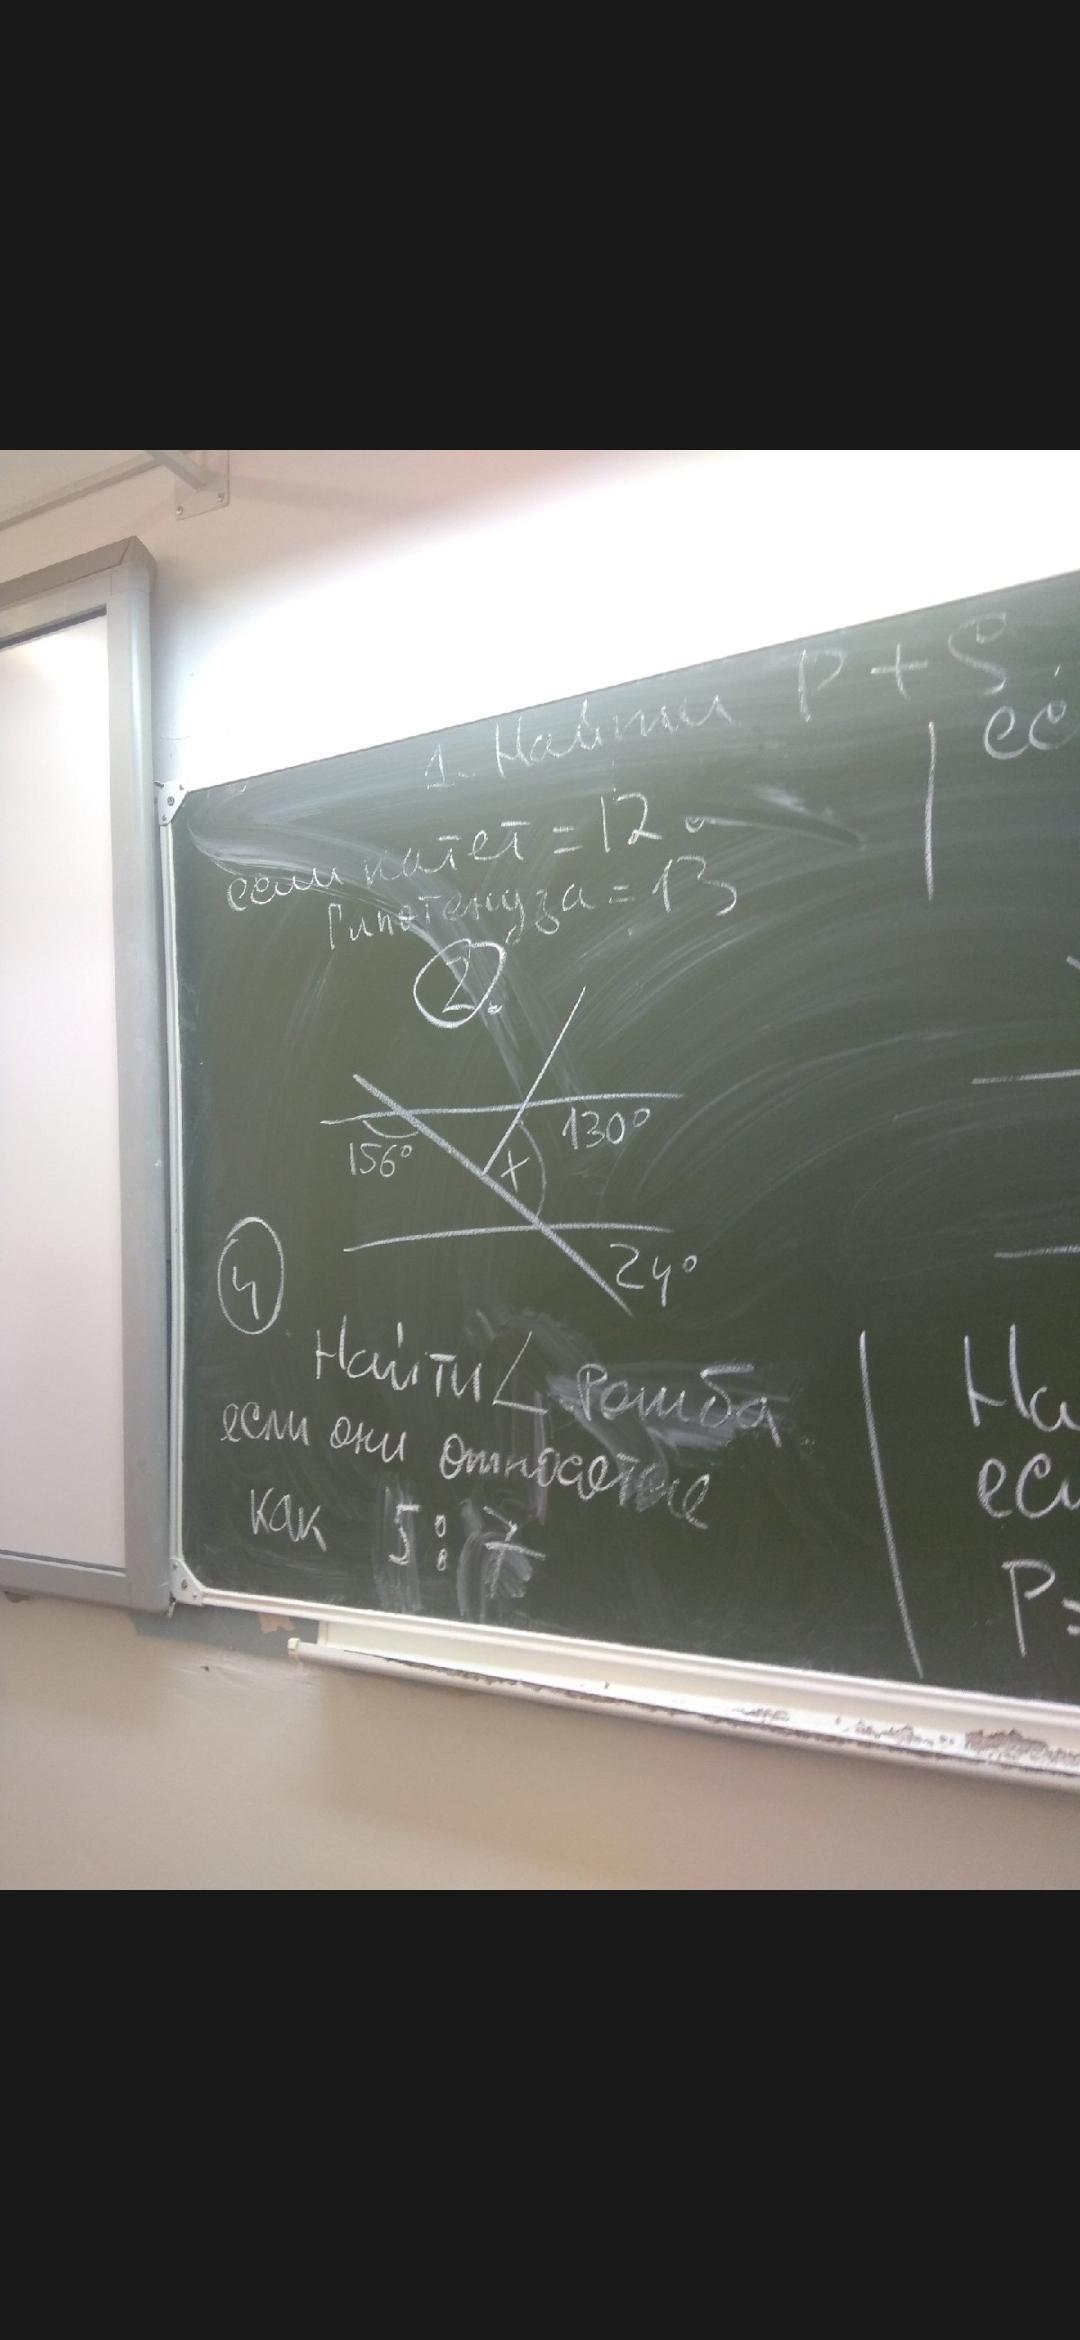 1. Найти P + S.
если катет = 12
Гипотенуза = 13
2.
130°
156°
x
24°
4
Найти ∠ Ромба
если они относятся
как 5:7
ес
На
если
P=